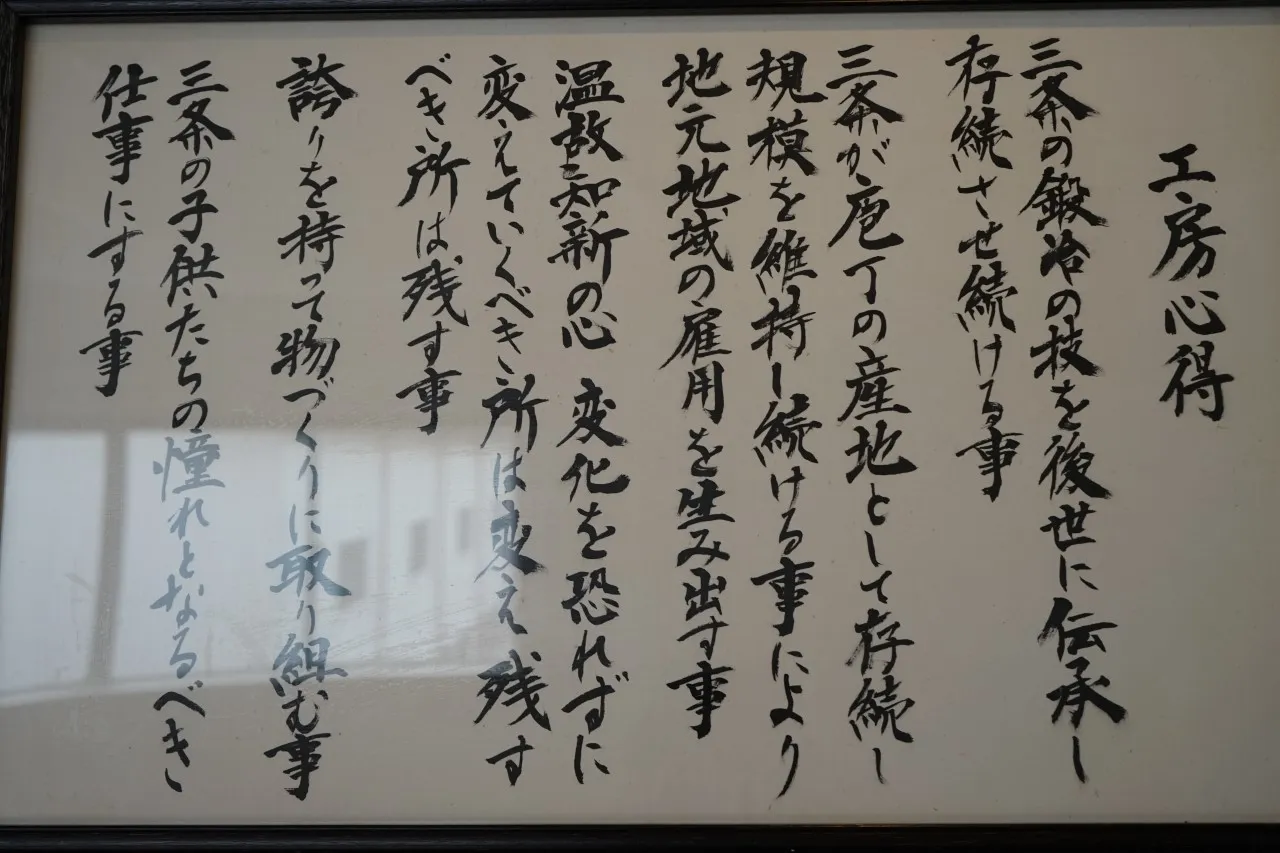 工房心得
三条の鍛冶の技を後世に伝承し
存続させ続ける事
三条が庖丁の産地として存続し
規模を維持し続ける事により
地元地域の雇用を生み出す事
温故知新の心 変化を恐れずに
変えていくべき所は変え残す
べき所は残す事
誇りを持って物づくりに取り組む事
三条の子供たちの憧れとなるべき
仕事にする事